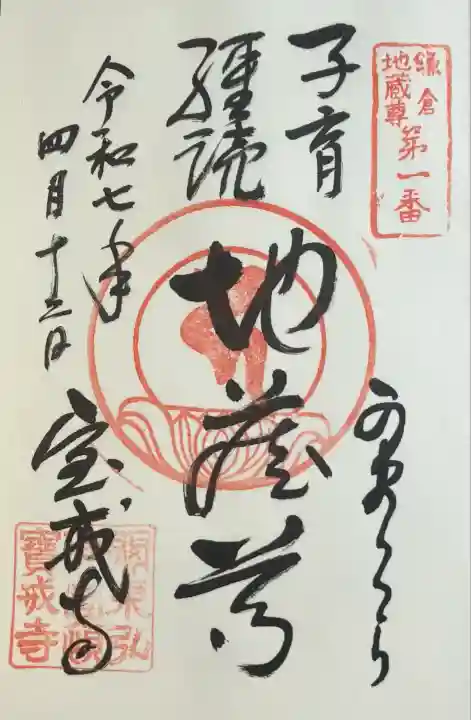 鎌倉
地蔵尊
第一番
子育
経読
地蔵尊
令和七年
四月十三日
宝戒寺
寶戒寺